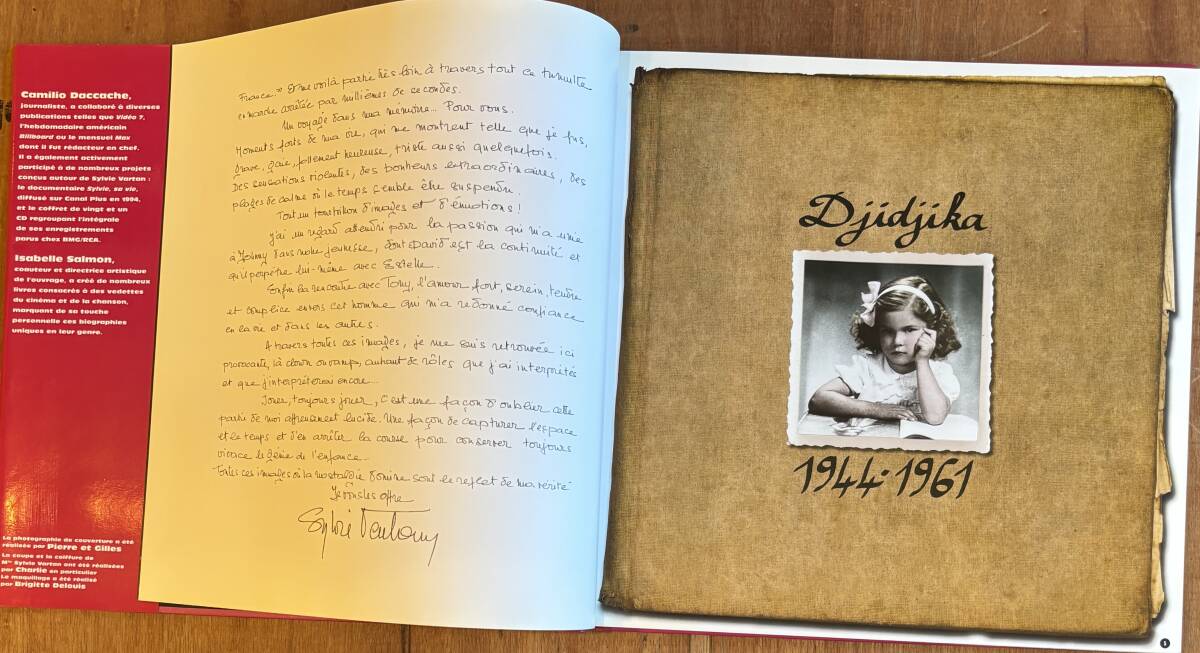 Camilio Daccache,
journaliste, a collaboré à diverses
publications telles que Vidéo 7,
l'hebdomadaire américain
Billboard ou le mensuel Max
dont il fut rédacteur en chef.
Il a également activement
participé à de nombreux projets
conçus autour de Sylvie Vartan :
le documentaire Sylvie, sa vie,
diffusé sur Canal Plus en 1994,
et le coffret de vingt et un
CD regroupant l'intégrale
de ses enregistrements
parus chez BMG/RCA.
Isabelle Salmon,
coauteur et directrice artistique
de l'ouvrage, a créé de nombreux
livres consacrés à des vedettes
du cinéma et de la chanson,
marquant de sa touche
personnelle ces biographies
uniques en leur genre.
La photographie de couverture a été
réalisée par Pierre et Gilles
La coupe et la coiffure de
Mme Sylvie Vartan ont été réalisées
par Charlie en particulier
Le maquillage a été réalisé
par Brigitte Delouis
France." Et me voilà partie très loin à travers tout ce tumulte
en marche arrêtée par millièmes de secondes.
Un voyage dans ma mémoire... Pour vous.
Moments forts de ma vie, qui me montrent telle que je fus,
grave, gaie, follement heureuse, triste aussi quelquefois.
Des sensations violentes, des bonheurs extraordinaires, des
plages de calme où le temps semble être suspendu.
Tout un tourbillon d'images et d'émotions !
J'ai un regard attendri pour la passion qui m'a unie
à Johnny dans notre jeunesse, dont David est la continuité et
qu'il perpétue lui-même avec Estelle.
Enfin la rencontre avec Tony, l'amour fort, serein, tendre
et complice envers cet homme qui m'a redonné confiance
en la vie et dans les autres.
A travers toutes ces images, je me suis retrouvée ici
provocante, là clown ou vamp, autant de rôles que j'ai interprétés
et que j'interpréterai encore...
Jouer, toujours jouer, c'est une façon d'oublier cette
partie de moi affreusement lucide. Une façon de capturer l'espace
et le temps et d'en arrêter la course pour conserver toujours
vivace le génie de l'enfance.
Toutes ces images où la nostalgie domine sont le reflet de ma vérité
Je vous les offre
Sylvie Vartan
Djidjika
1944-1961